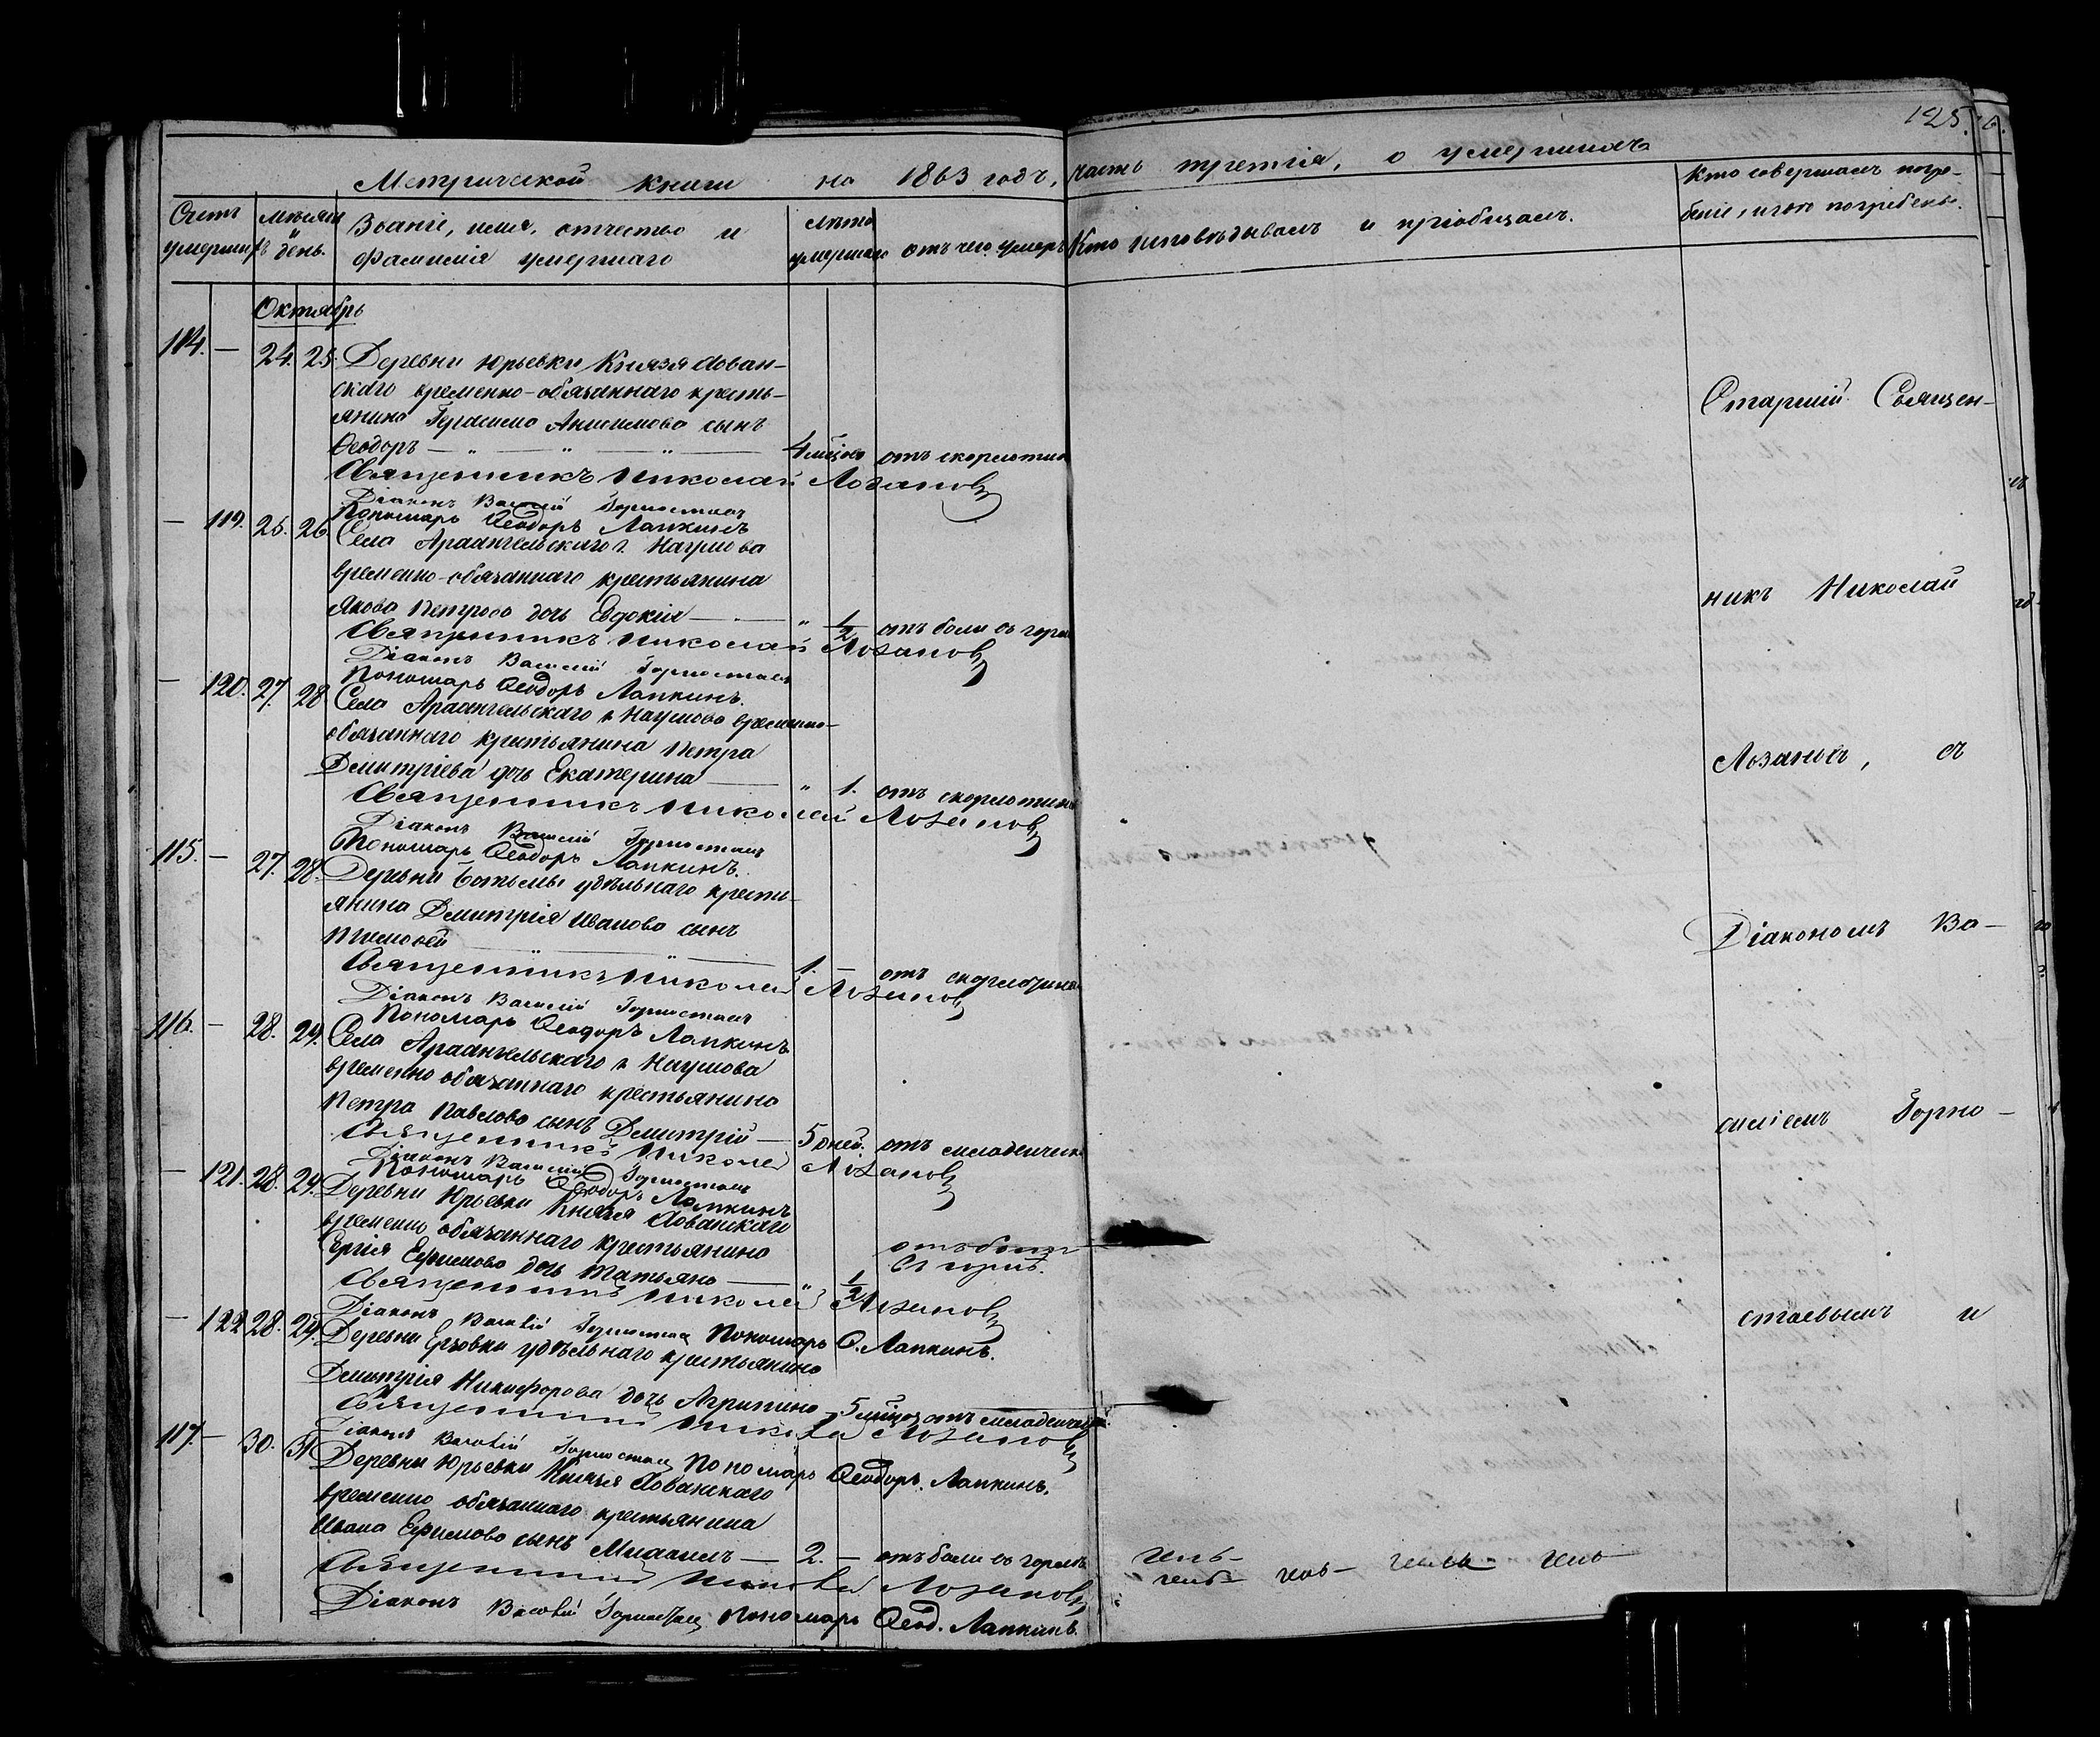 125.
Метрической книги на 1863 годъ, часть третія, о умершихъ
Счетъ умершихъ
Мѣсяцъ и день.
Званіе, имя, отчество и фамилія умершаго
Лѣта умершаго
отъ чего умеръ
Кто исповѣдывалъ и пріобщалъ.
Кто совершалъ погребеніе, и гдѣ погребены.
Октябрь
114. — 24. 25. Деревни Юрьевки Князя Хован-
скаго временно-обязаннаго кресть-
янина Герасима Анисимова сынъ
Ѳеодоръ — " — " — " — 4 мѣсяц. отъ скорлотины
Священникъ Николай Лозановъ
Діаконъ Василій Горностаевъ
Пономарь Ѳеодоръ Лапкинъ
— 119. 25. 26. Села Архангельскаго г. Наумова
временно-обязаннаго крестьянина
Якова Петрова дочь Евдокія — " 1/2 отъ боли въ горлѣ
Священникъ Николай Лозановъ
Діаконъ Василій Горностаевъ
Пономарь Ѳеодоръ Лапкинъ.
— 120. 27. 28. Села Архангельскаго г. Наумова временно-
обязаннаго крестьянина Петра
Дмитріева дочь Екатерина — " 1. отъ скорлотины
Священникъ Николай Лозановъ
Діаконъ Василій Горностаевъ
Пономарь Ѳеодоръ Лапкинъ.
115. — 27. 28. Деревни Ботьмы удѣльнаго кресть-
янина Дмитрія Иванова сынъ
Тимоѳей — 1. — отъ скорлотины
Священникъ Николай Лозановъ
Діаконъ Василій Горностаевъ
Пономарь Ѳеодоръ Лапкинъ
116. — 28. 29. Села Архангельскаго г. Наумова
временно обязаннаго крестьянина
Петра Павлова сынъ Дмитрій — 5 дней. отъ младенческ.
Священникъ Николай Лозановъ
Діаконъ Василій Горностаевъ
Пономарь Ѳеодоръ Лапкинъ
— 121. 28. 29. Деревни Юрьевки Князя Хованскаго
временно обязаннаго крестьянина
Сергія Ефимова дочь Татьяна — " 1/2 отъ боли въ горлѣ.
Священникъ Николай Лозановъ
Діаконъ Василій Горностаевъ Пономарь Ѳ. Лапкинъ.
— 122 28. 29. Деревни Ерзовки удѣльнаго крестьянина
Дмитрія Никифорова дочь Агрипина — 5 мѣсяц. отъ младенческ.
Священникъ Николай Лозановъ
Діаконъ Василій Горностаевъ Пономарь Ѳеодоръ Лапкинъ.
117. — 30. 31. Деревни Юрьевки Князя Хованскаго
временно обязаннаго крестьянина
Ивана Ефимова сынъ Михаилъ — 2. — отъ боли въ горлѣ
Священникъ Николай Лозановъ
Діаконъ Василій Горностаевъ Пономарь Ѳеод. Лапкинъ.
Старшій Священ-
никъ Николай
Лозановъ, съ
Діакономъ Ва-
силіемъ Горно-
стаевымъ и